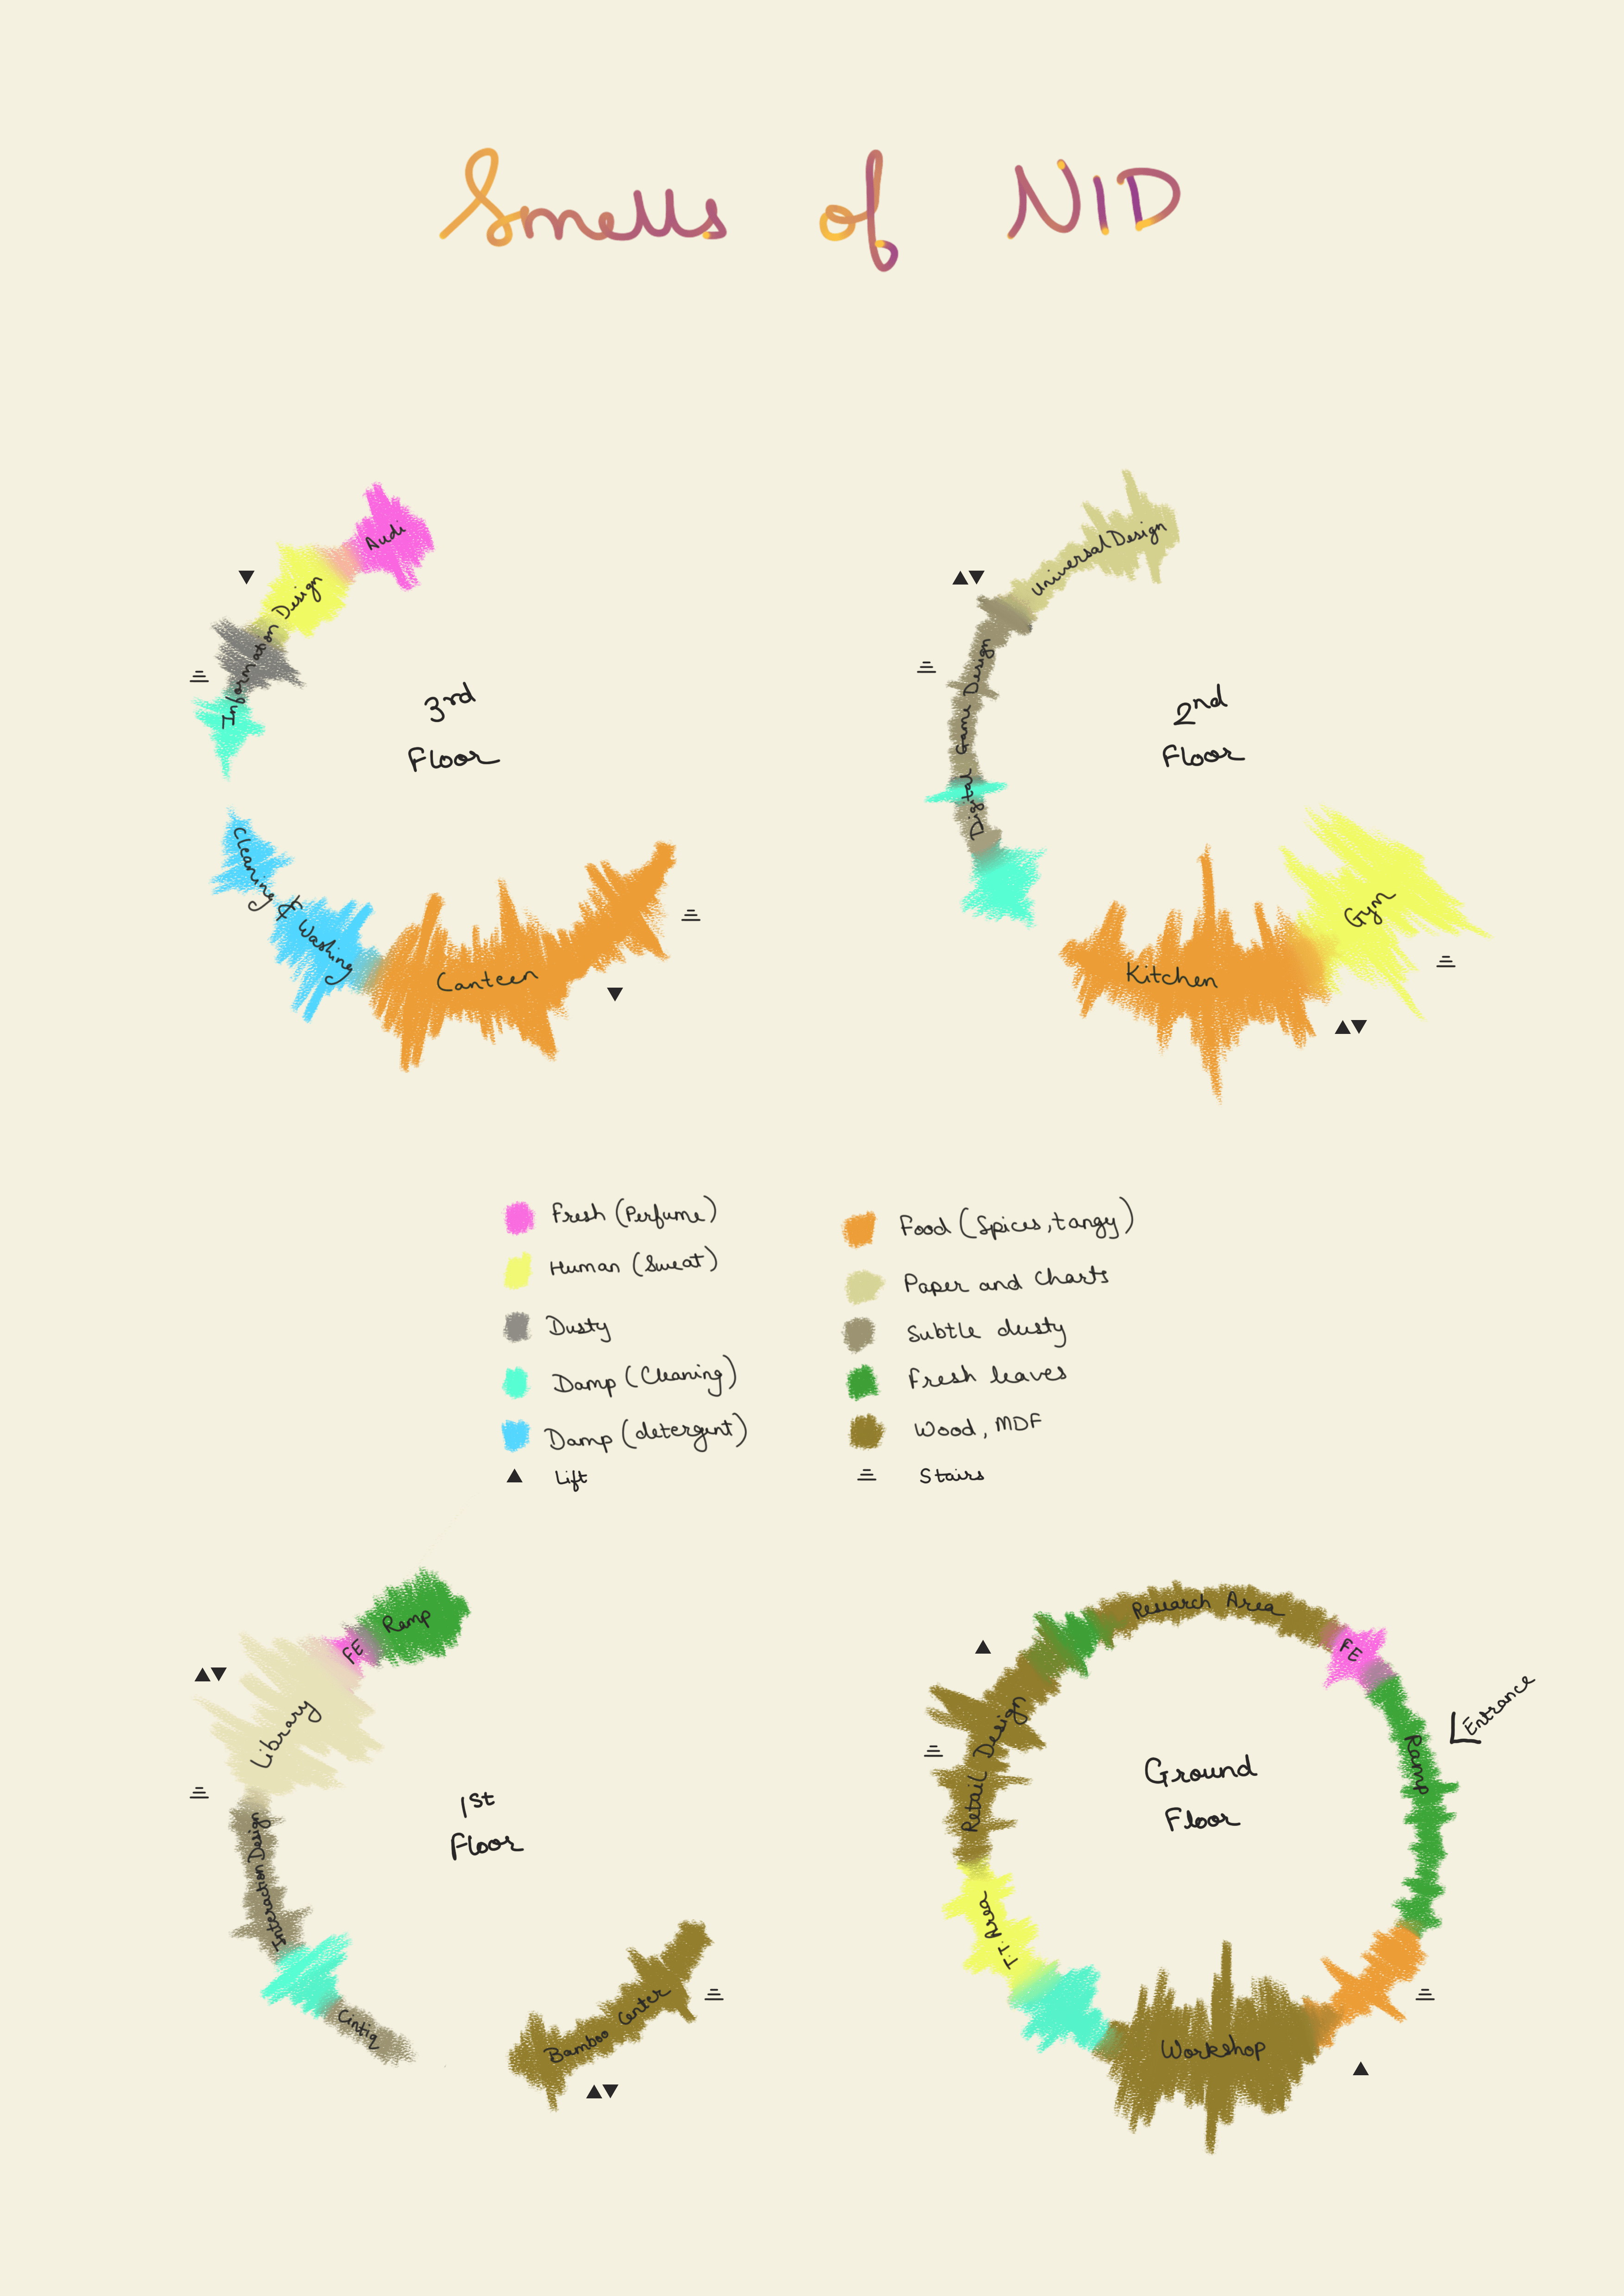 Smells of NID
Audi
Information Design
3rd
Floor
Cleaning &
Washing
Canteen
Universal Design
Digital Game Design
2nd
Floor
Kitchen
Gym
Fresh (Perfume)
Human (Sweat)
Dusty
Damp (Cleaning)
Damp (detergent)
Lift
Food (Spices, tangy)
Paper and Charts
Subtle dusty
Fresh leaves
Wood, MDF
Stairs
Ramp
FE
Library
Interaction Design
Cintiq
1st
Floor
Bamboo Center
Research Area
FE
Entrance
Ramp
Retail Design
Ground
Floor
T.T. Area
Workshop